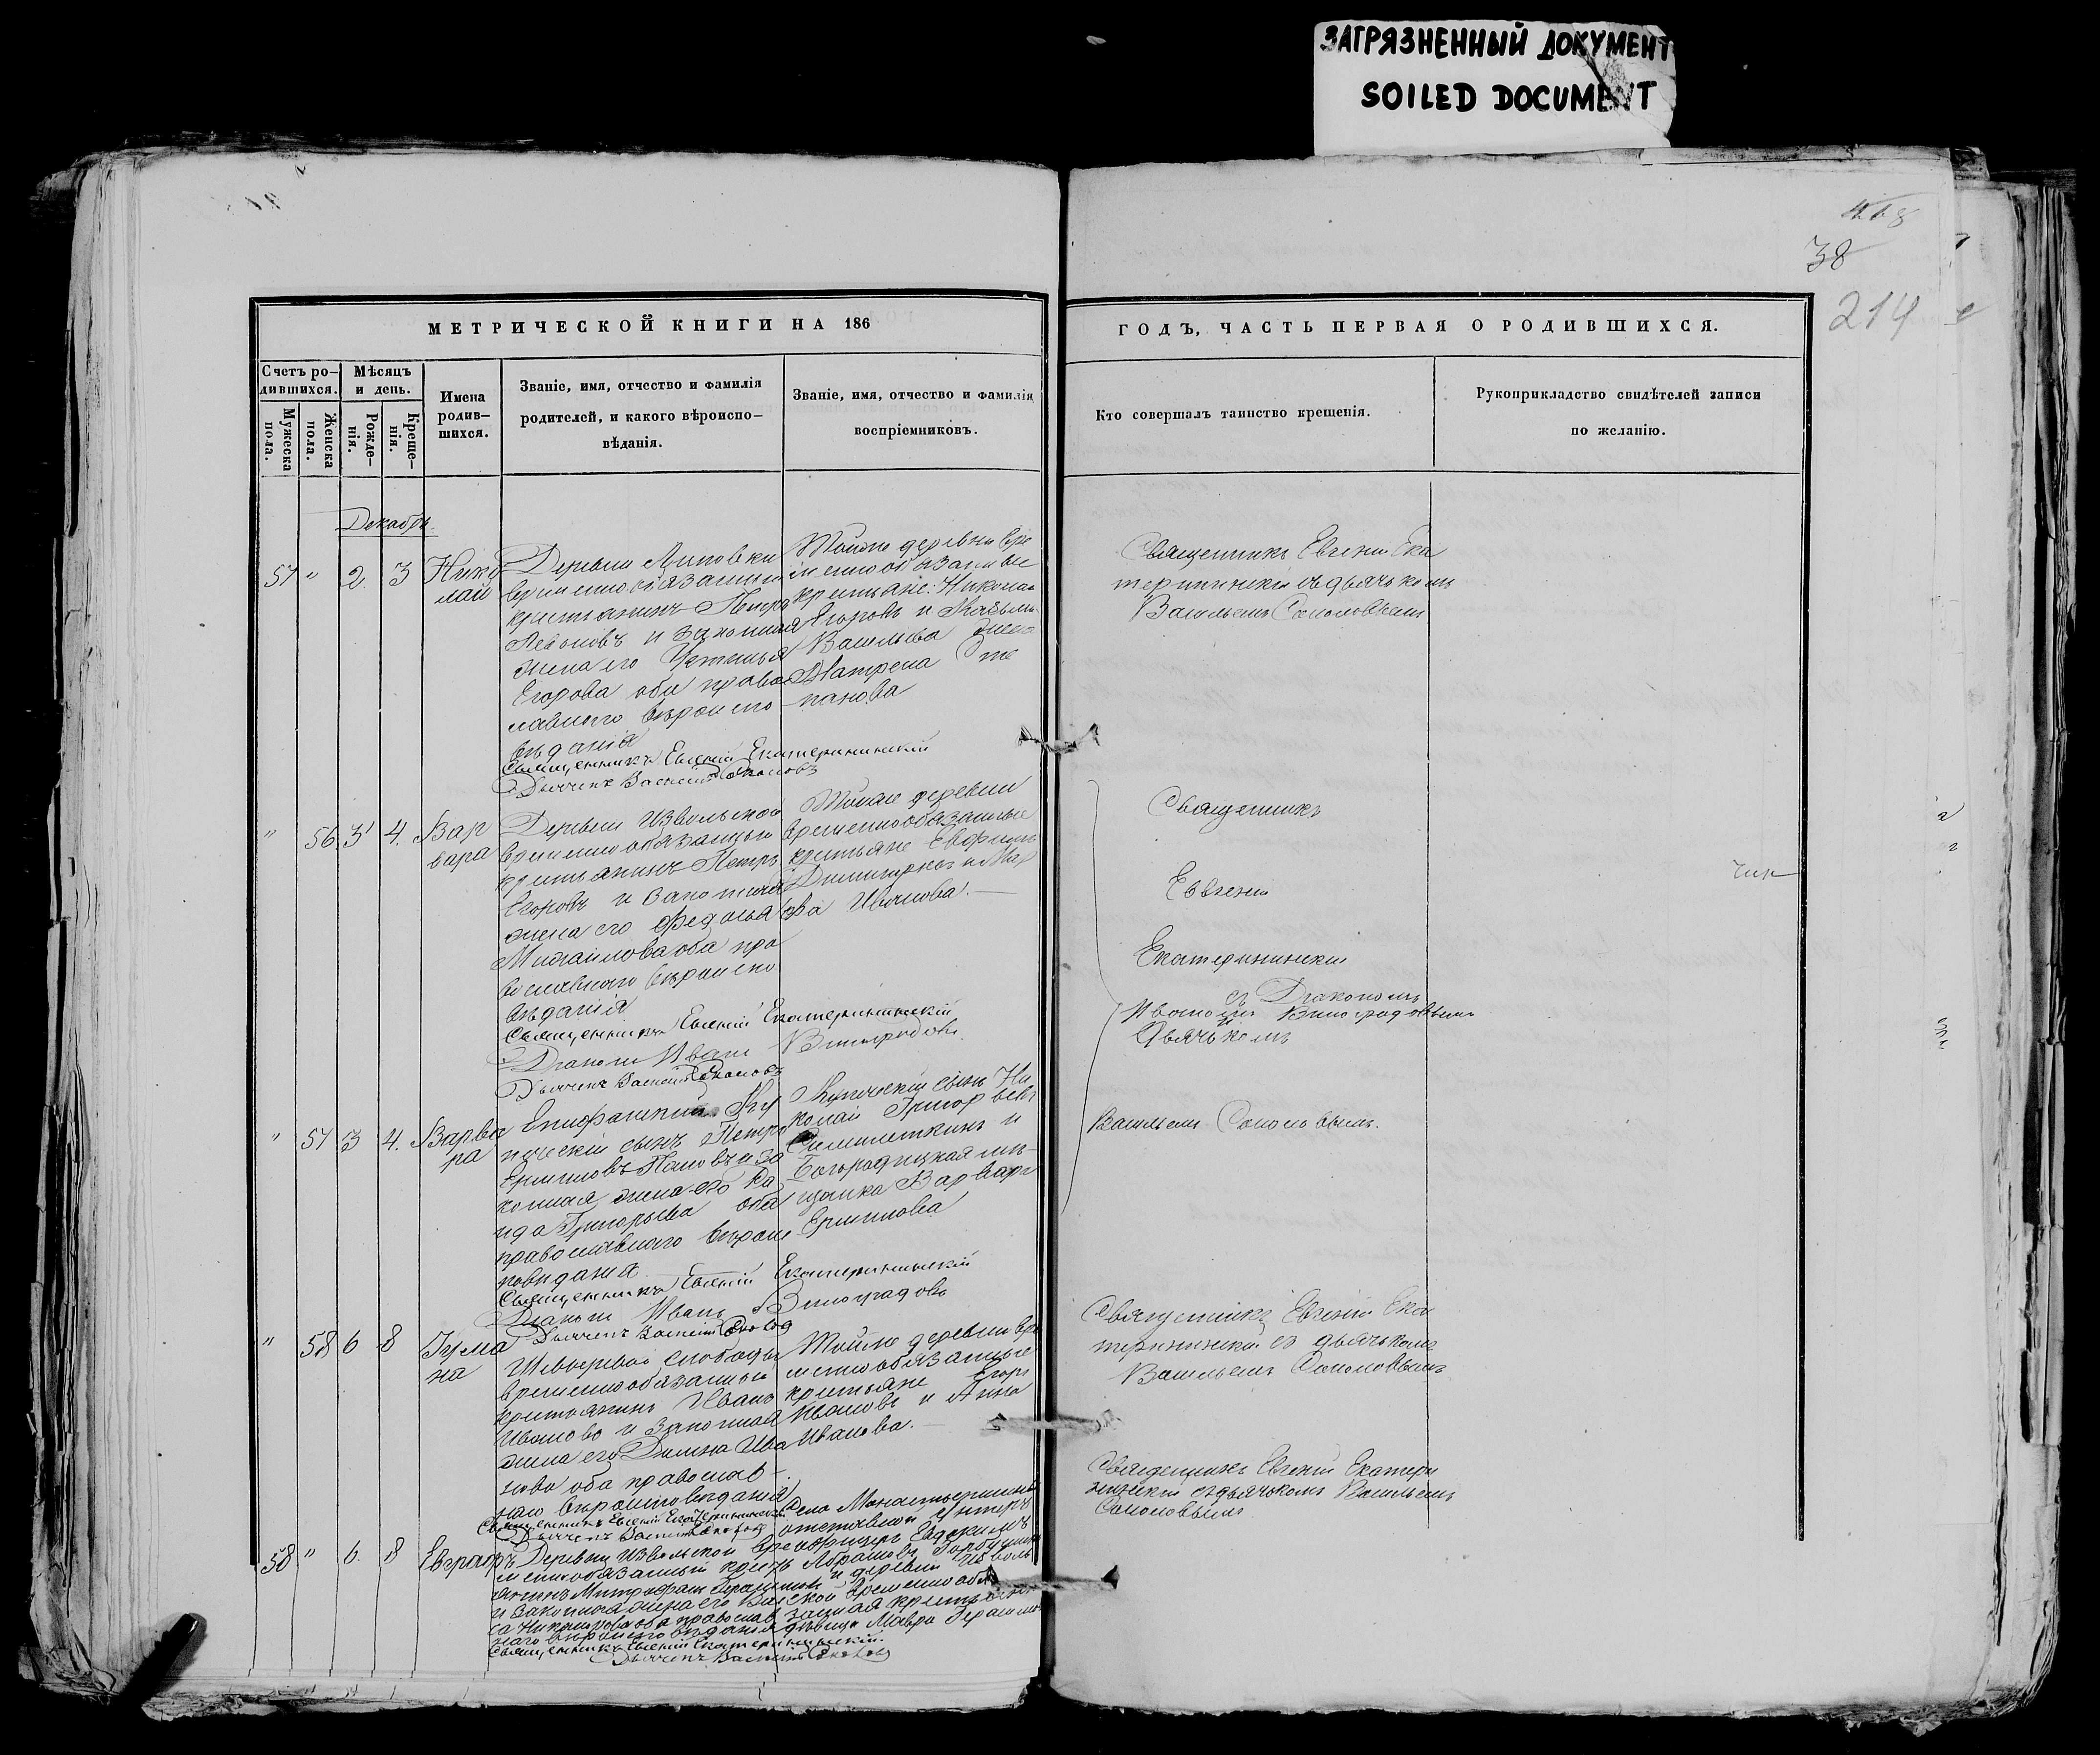 ЗАГРЯЗНЕННЫЙ ДОКУМЕНТ
SOILED DOCUMENT
38
214
МЕТРИЧЕСКОЙ КНИГИ НА 186
Счетъ ро-
дившихся.
Мужеска
пола.
Женска
пола.
Мѣсяцъ
и день.
Рожде-
нія.
Креще-
нія.
Имена
родив-
шихся.
Званіе, имя, отчество и фамилія
родителей, и какого вѣроиспо-
вѣданія.
Званіе, имя, отчество и фамилія
воспріемниковъ.
ГОДЪ, ЧАСТЬ ПЕРВАЯ О РОДИВШИХСЯ.
Кто совершалъ таинство крещенія.
Рукоприкладство свидѣтелей записи
по желанію.
Декабрь
57 " 2. 3 Нико
лай
Деревни Липовки
временнообязанный
крестьянинъ Петръ
Леоновъ и законная
жена его
Егорова оба правос
лавнаго вѣроиспо
вѣданія
Священникъ Евгеній Екатерининскій
Дьячекъ Василій Соколовъ
Тойже деревни вре
меннообязанные
крестьяне: Николай
Егоровъ и
Васильева жена
Матрена Сте
панова
Священникъ Евгеній Ека
терининскій съ дьячькомъ
Васильемъ Соколовымъ
" 56 3 4. Вар
вара
Деревни Извольской
временнообязанный
крестьянинъ Петръ
Егоровъ и законная
жена его Федосья
Михайлова оба пра
вославнаго вѣроиспо
вѣданія
Священникъ Евгеній Екатерининскій
Діаконъ Иванъ Виноградовъ
Дьячекъ Василій Соколовъ
Тойже деревни
временнообязанные
крестьяне Евфимъ
Димитріевъ и Мар
фа Иванова.
Священникъ
Евгеній
Екатерининскій
съ Діакономъ
Иваномъ Виноградовымъ
и
Дьячькомъ
Васильемъ Соколовымъ.
" 57 3 4. Варва
ра
Епифанскій Ку
печескій сынъ Петръ
Ермиловъ Поповъ и за
конная жена его
Григорьева оба
православнаго вѣроис
повѣданія
Священникъ Евгеній Екатерининскій
Діаконъ Иванъ Виноградовъ
Дьячекъ Василій Соколовъ
Купеческій сынъ Ни
колай Григорьевъ
и
Богородицкая мѣ-
щанка Варвара
Ермилова
" 58 6 8
на
слободы
временнообязанный
крестьянинъ Иванъ
Ивановъ и законная
жена его Ива
нова оба православ-
наго вѣроисповѣданія
Священникъ Евгеній Екатерининскій
Дьячекъ Василій Соколовъ
Тойже деревни вре
меннообязанные
крестьяне Егоръ
Ивановъ и Анна
Иванова.
Священникъ Евгеній Ека
терининскій съ дьячькомъ
Васильемъ Соколовымъ
58 " 6. 8 Евграфъ
Деревни Извольской вре
меннообязанный кресть
янинъ Митрофанъ Герасимовъ
и законная жена его
оба православ
наго вѣроисповѣданія
Священникъ Евгеній Екатерининскій.
Дьячекъ Василій Соколовъ
Села Монастырщины
отставной унтеръ
офицеръ Евдокимъ
Абрамовъ
и деревни Изволь
ской временнообя
занная крестьянская
дѣвица Мавра Герасимова
Священникъ Евгеній Екатери
нинскій съ дьячькомъ Васильемъ
Соколовымъ